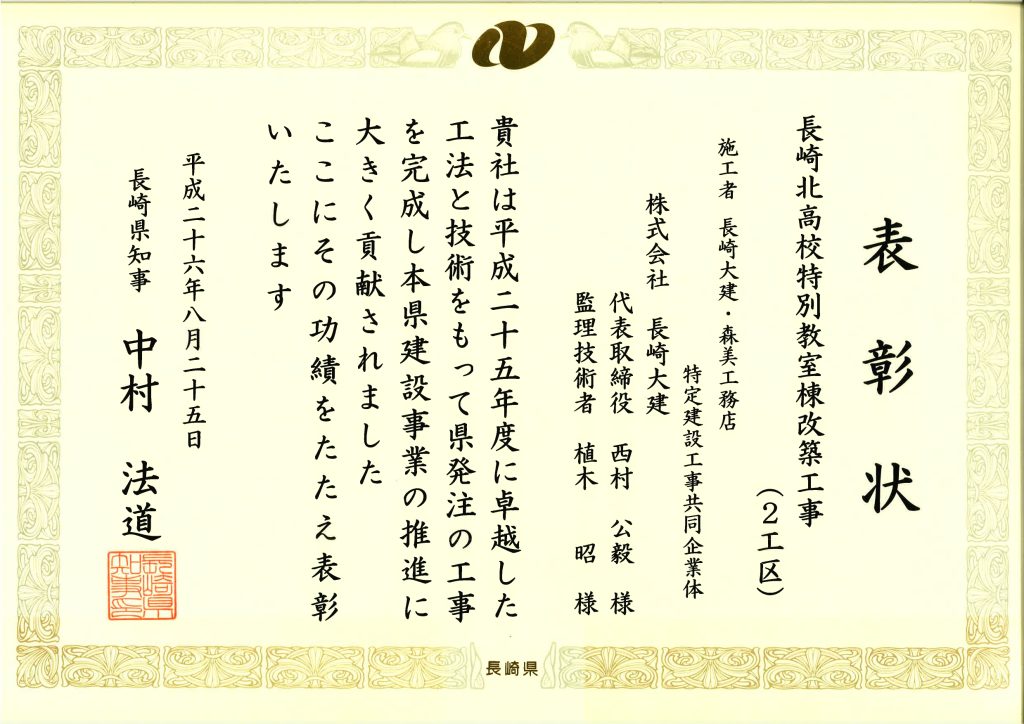 表彰状
長崎北高校特別教室棟改築工事
（２工区）
施工者 長崎大建・森美工務店
特定建設工事共同企業体
株式会社 長崎大建
代表取締役 西村 公毅 様
監理技術者 植木 昭 様
貴社は平成二十五年度に卓越した
工法と技術をもって県発注の工事
を完成し本県建設事業の推進に
大きく貢献されました
ここにその功績をたたえ表彰
いたします
平成二十六年八月二十五日
長崎県知事 中村 法道
長崎県知事之印
長崎県